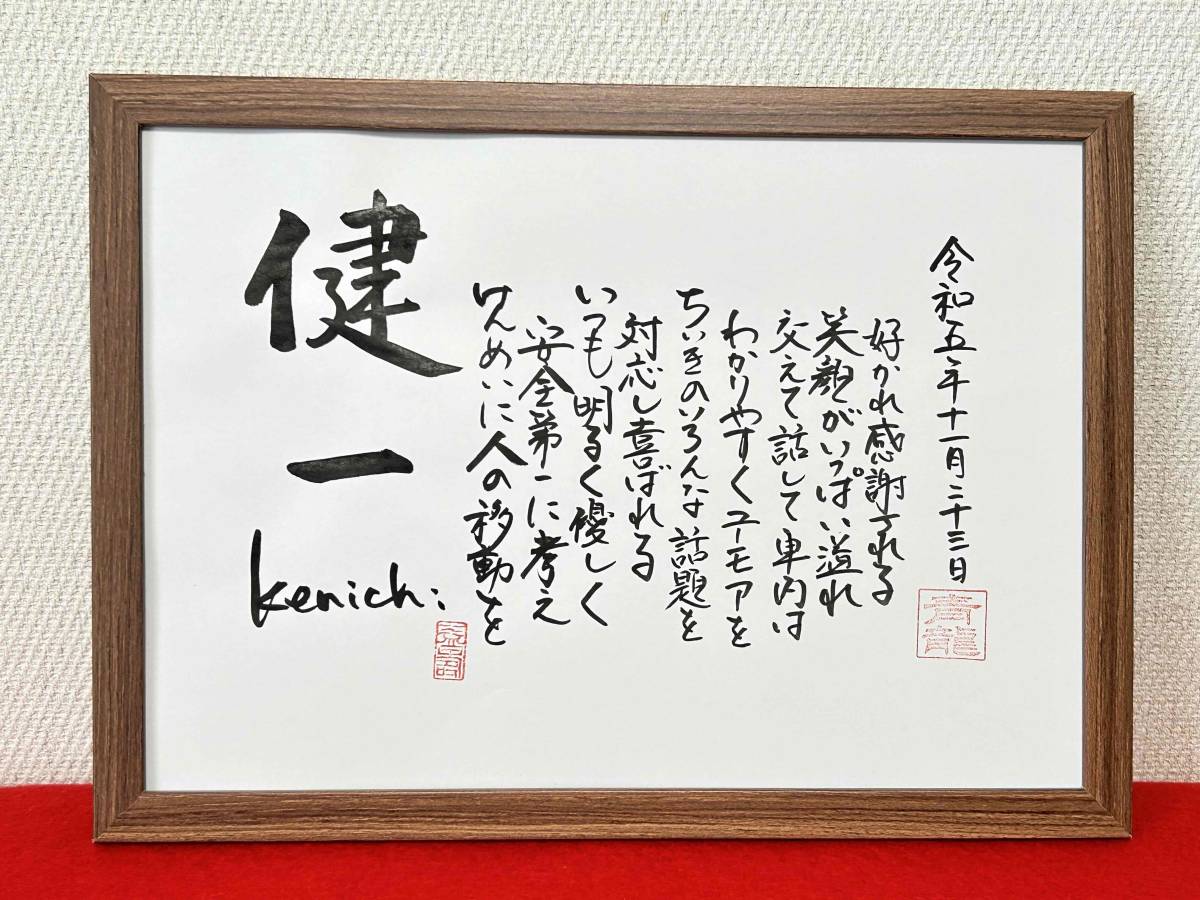 健一
Kenichi
けんめいに人の移動を
安全第一に考え
いつも明るく優しく
対応し喜ばれる
ちいきのいろんな話題を
わかりやすくユーモアを
交えて話して車内は
笑顔がいっぱい溢れ
好かれ感謝される
令和五年十一月二十三日